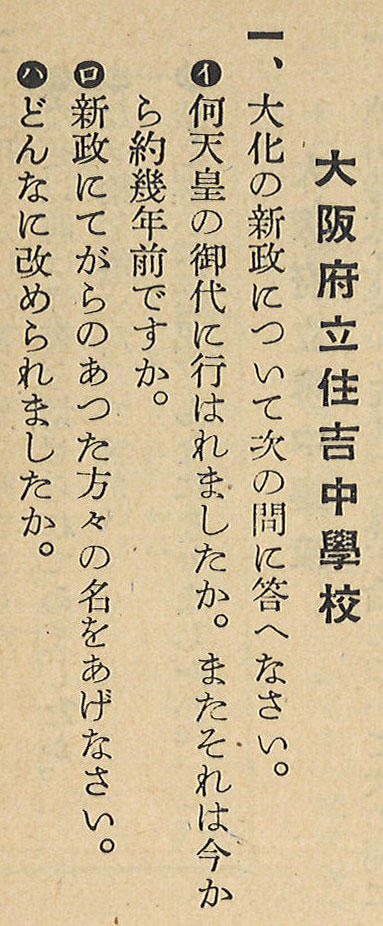 大阪府立住吉中學校
一、大化の新政について次の問に答へなさい。
イ何天皇の御代に行はれましたか。またそれは今か
ら約幾年前ですか。
ロ新政にてがらのあつた方々の名をあげなさい。
ハどんなに改められましたか。